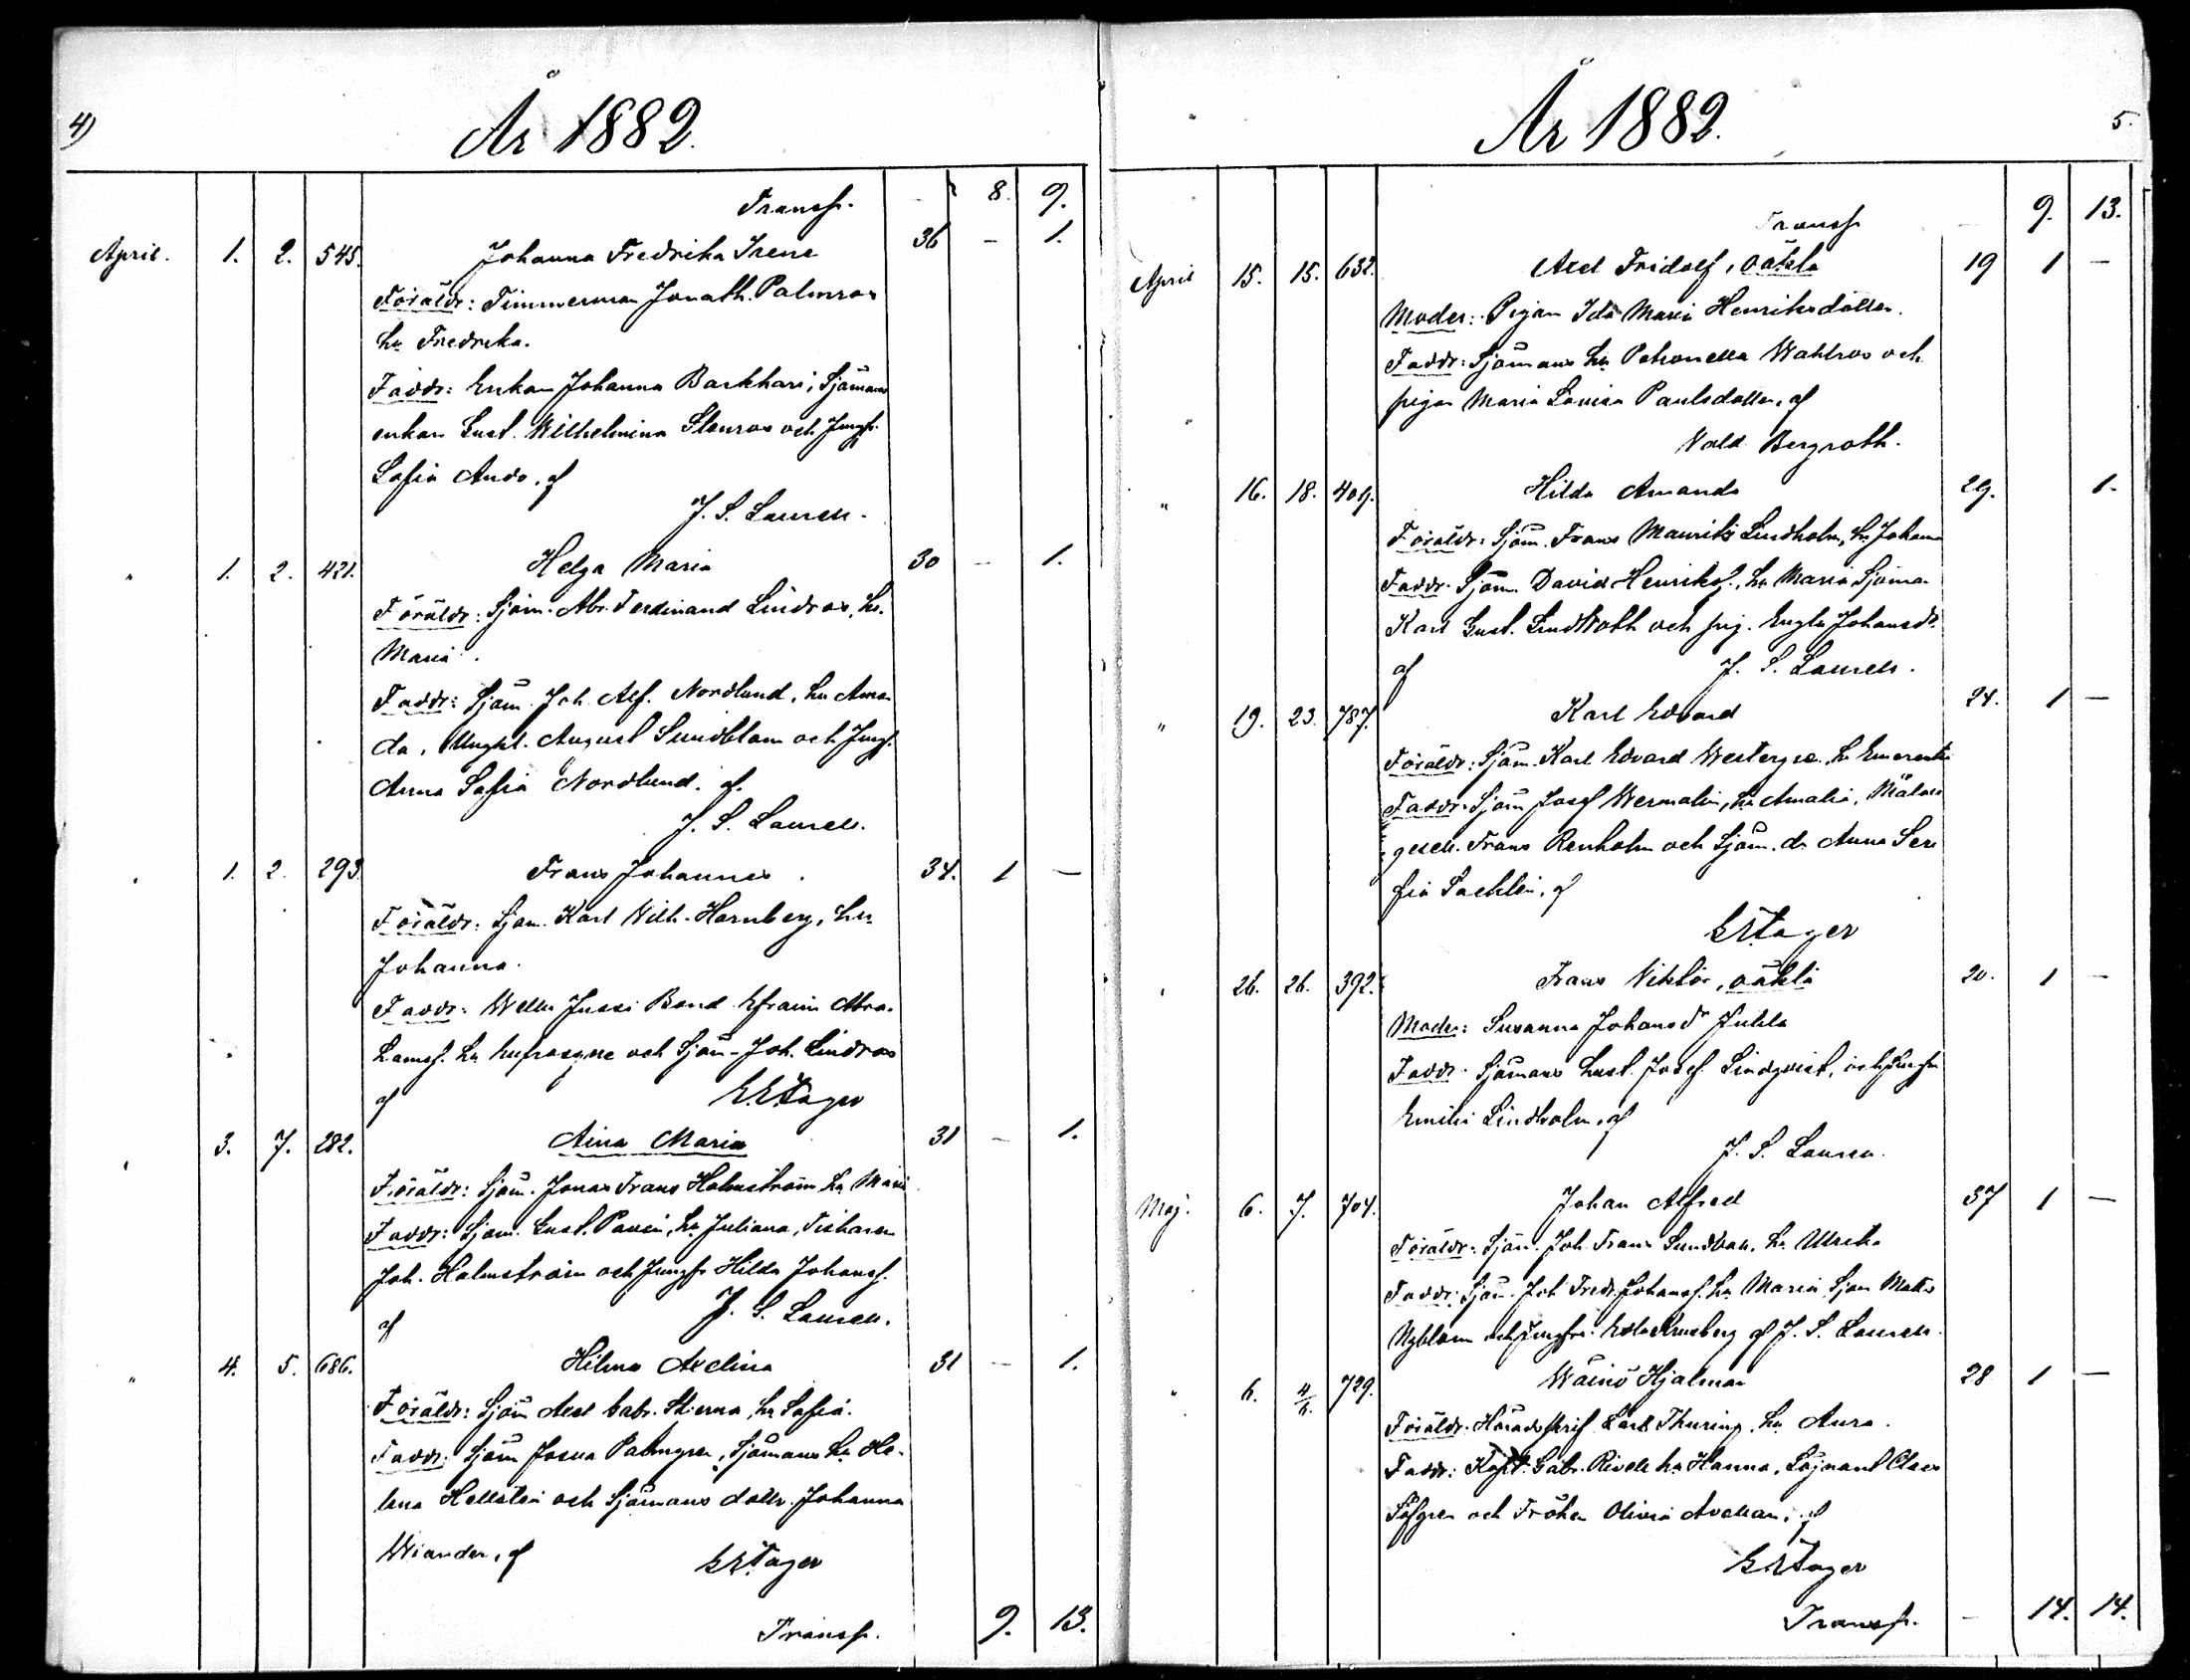 4)
År 1882.
Transp. 8. 9.
April. 1. 2. 545. Johanna Fredrika Irene 36 - 1.
Föräldr: Timmerman Jonath. Palmros
hu Fredrika.
Faddr: Enkan Johanna Backhari, Sjömans
enkan Gust. Wilhelmina Stenros och Jungfr.
Sofia Ando, af
J. S. Laurell.
" 1. 2. 421. Helga Maria 30 - 1.
Föräldr: Sjöm. Abr. Ferdinand Lindros, hu.
Maria.
Faddr: Sjöm. Joh. Alf. Nordlund, hu Aman
da, Ungkl. August Sundblom och Jungf.
Anna Sofia Nordlund. af.
J. S. Laurell.
" 1. 2. 293. Frans Johannes 34. 1 -
Föräldr: Sjöm. Karl Wilh. Hornberg, hu
Johanna.
Faddr: Jussi Bond Efraim Abra-
hamsf. hu Eufrosyne och Sjöm. Joh. Lindros
af
" 3. 7. 282. Aina Maria 31 - 1.
Föräldr: Sjöm. Jonas Frans Holmström hu Maria
Faddr: Sjöm. Gust. Pavén, hu Juliana, Fiskaren
Joh. Holmström och Jungfr Hilda Johansf.
af J. S. Laurell.
" 4. 5. 686. Hilma Axelina 31 - 1.
Föräldr: Sjöm Axel Gabr. Stierna, hu Sofia.
Faddr: Sjöm Josua Palmgren, Sjömans hu He-
lena Hellstén och Sjömans dottr. Johanna
Wiander, af
Transp. 9. 13.
5.
År 1882.
Transp - 9. 13.
April 15. 15. 632. Axel Fridolf, oäkta 19 1 -
Moder: Pigan Ida Maria Henriksdotter.
Faddr: Sjömans hu Petronella Wahlros och
pigan Maria Lovisa Paulsdotter, af
Vald. Bergroth.
" 16. 18. 409. Hilda Amanda 29. 1.
Föräldr: Sjöm. Frans Maurits Lindholm, hu Johanna
Faddr: Sjöm. David Henriksf., hu Maria Sjöma.
Karl Gust. Lindroth och pig. Engla Johansdr
af J. S. Laurell.
" 19. 23. 787. Karl Edvard 24. 1 -
Föräldr: Sjöm. Karl Edvard Westergren, hu Emerentia
Faddr: Sjöm Josef Wermelin, hu Amalia, Målare
gesell. Frans Renholm och Sjöm. dr Anna Sera
fia af
" 26. 26. 392. Frans Viktor, oäkta 20. 1 -
Moder: Susanna Johansdr Juhla
Faddr: Sjömans Gust. Josef Lindqvist, och Jungfru
Emilia Lindholm, af
J. S. Laurell.
Maj. 6. 7. 704. Johan Alfred 37 1 -
Föräldr: Sjöm. Joh. Frans Sundvall, hu Ulrika
Faddr: Sjöm. Joh Fredr. Johansf. hu Maria Sjöm Matts
Nyblom och Jungfru: af J. S. Laurell.
" 6. 4/6. 729. Wäinö Hjalmar 28 1 -
Föräldr: Häradsskrif Karl Thuring, hu Aura.
Faddr: Kapt. Gabr. Rivell hu Hanna, Löjnant Claes
Löfgren och Fröken Olivia Avellan, af
Transp. - 14. 14.